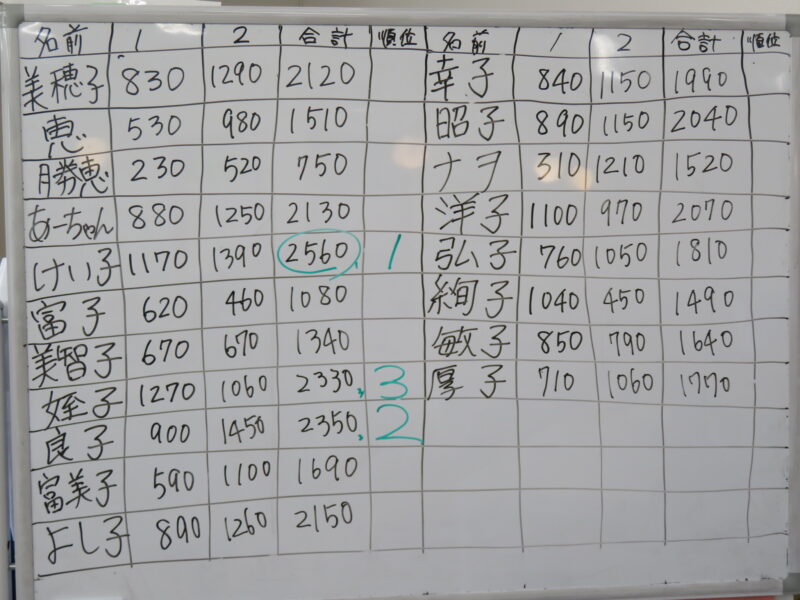 名前 1 2 合計 順位 名前 1 2 合計 順位
美穂子 830 1290 2120 幸子 840 1150 1990
恵 530 980 1510 昭子 890 1150 2040
勝恵 230 520 750 ナヲ 310 1210 1520
あーちゃん 880 1250 2130 洋子 1100 970 2070
けい子 1170 1390 2560 1 弘子 760 1050 1810
富子 620 460 1080 絢子 1040 450 1490
美智子 670 670 1340 敏子 850 790 1640
姪子 1270 1060 2330 3 厚子 710 1060 1770
良子 900 1450 2350 2
富美子 590 1100 1690
よし子 890 1260 2150